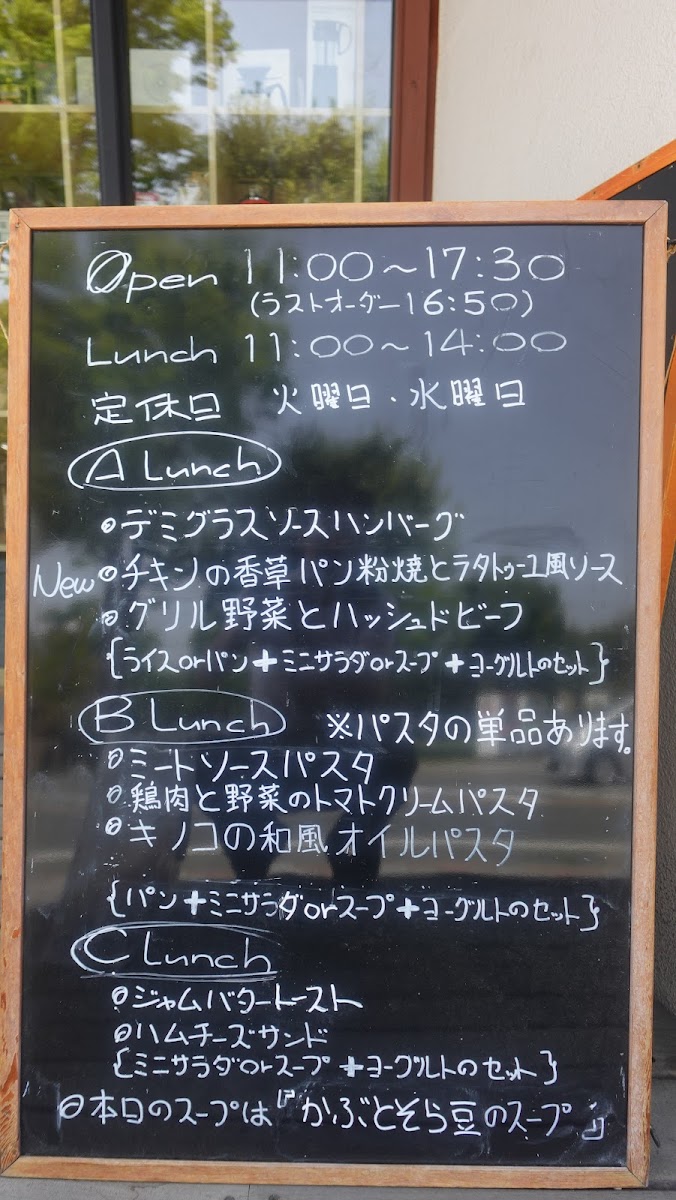 Open 11:00~17:30
(ラストオーダー16:50)
Lunch 11:00~14:00
定休日 火曜日・水曜日
A Lunch
◎デミグラスソースハンバーグ
New◎チキンの香草パン粉焼とラタトゥーユ風ソース
◎グリル野菜とハッシュドビーフ
{ライスorパン+ミニサラダorスープ+ヨーグルトのセット}
B Lunch ※パスタの単品あります。
◎ミートソースパスタ
◎鶏肉と野菜のトマトクリームパスタ
◎キノコの和風オイルパスタ
{パン+ミニサラダorスープ+ヨーグルトのセット}
C Lunch
◎ジャムバタートースト
◎ハムチーズサンド
{ミニサラダorスープ+ヨーグルトのセット}
◎本日のスープは『かぶとそら豆のスープ』